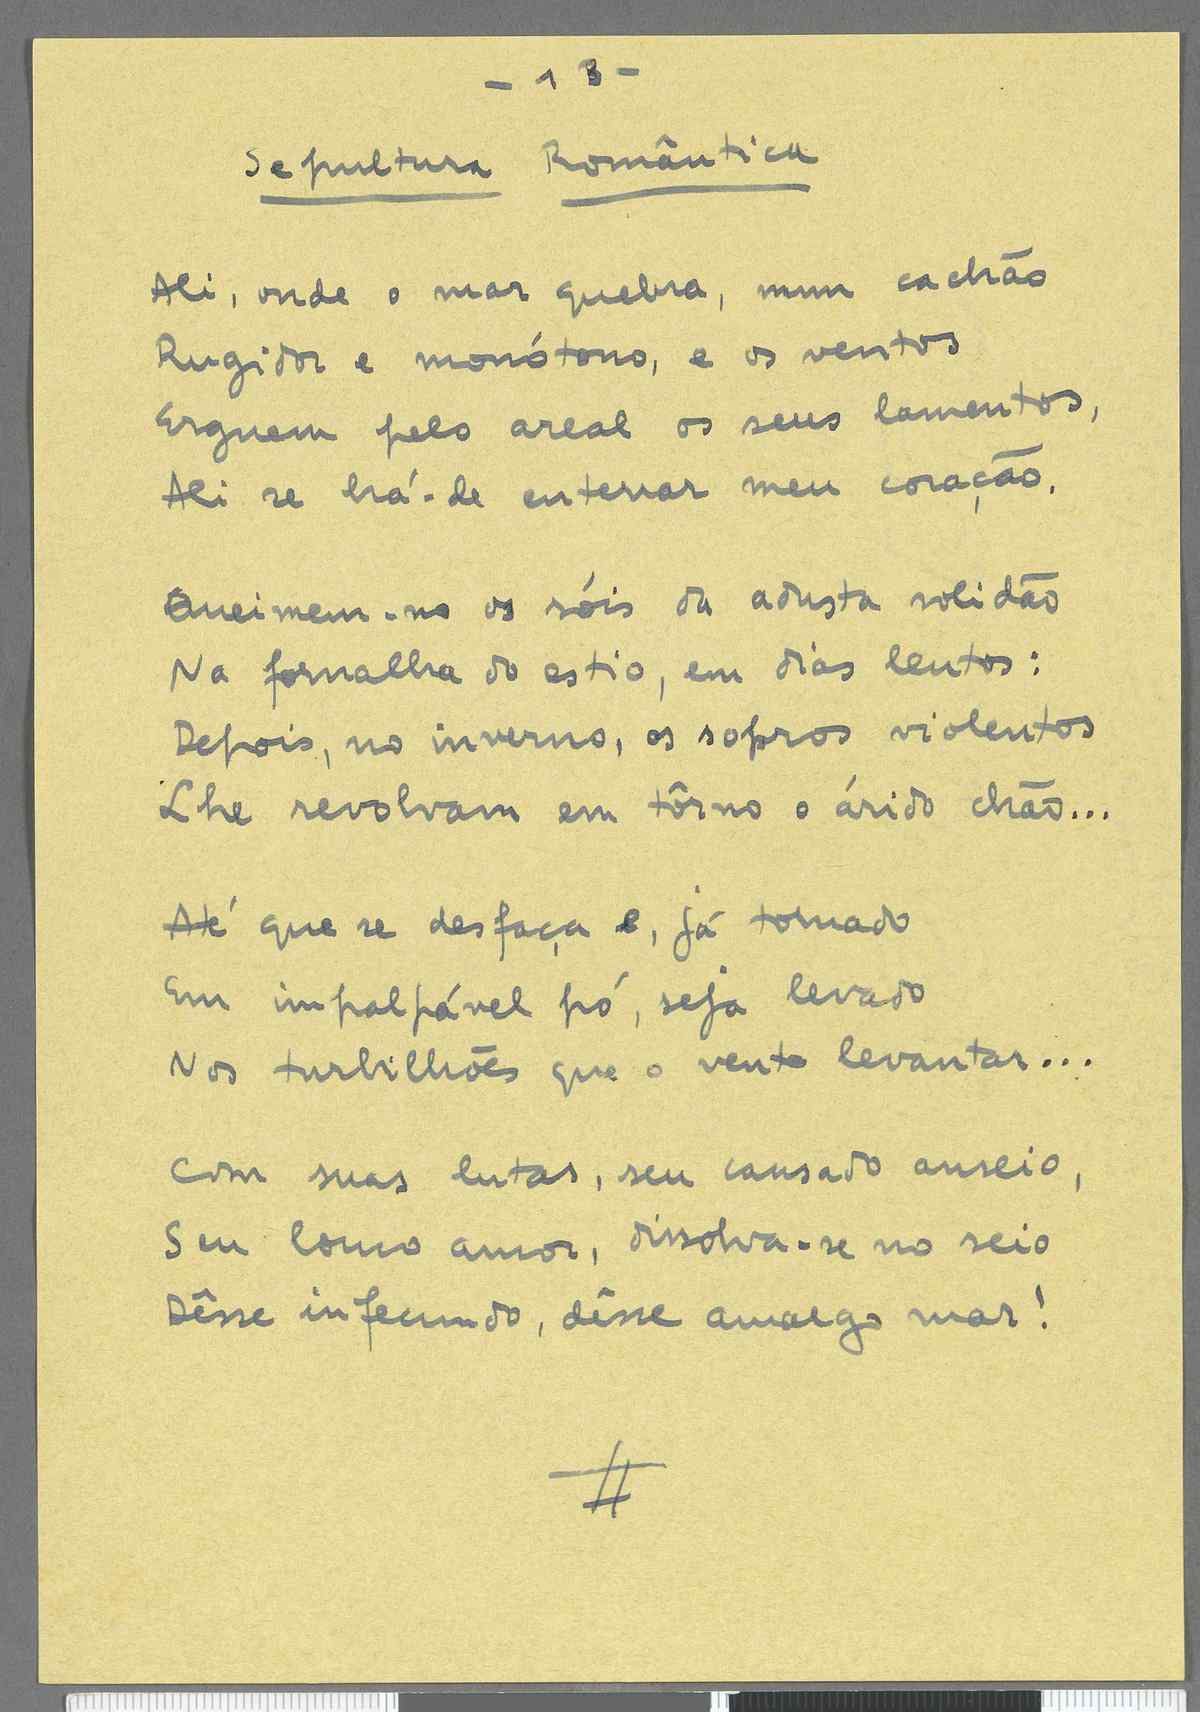 - 13 -
Sepultura Romântica
Ali, onde o mar quebra, num cachão
Rugidor e monótono, e os ventos
Erguem pelo areal os seus lamentos,
Ali se há-de enterrar meu coração.
Queimem-no os sóis da adusta solidão
Na fornalha do estio, em dias lentos:
Depois, no inverno, os sopros violentos
Lhe revolvam em tôrno o árido chão...
Até que se desfaça e, já tornado
Em impalpável pó, seja levado
Nos turbilhões que o vento levantar...
Com suas lutas, seu cansado anseio,
Seu louco amor, dissolva-se no seio
Dêsse infecundo, dêsse amargo mar!